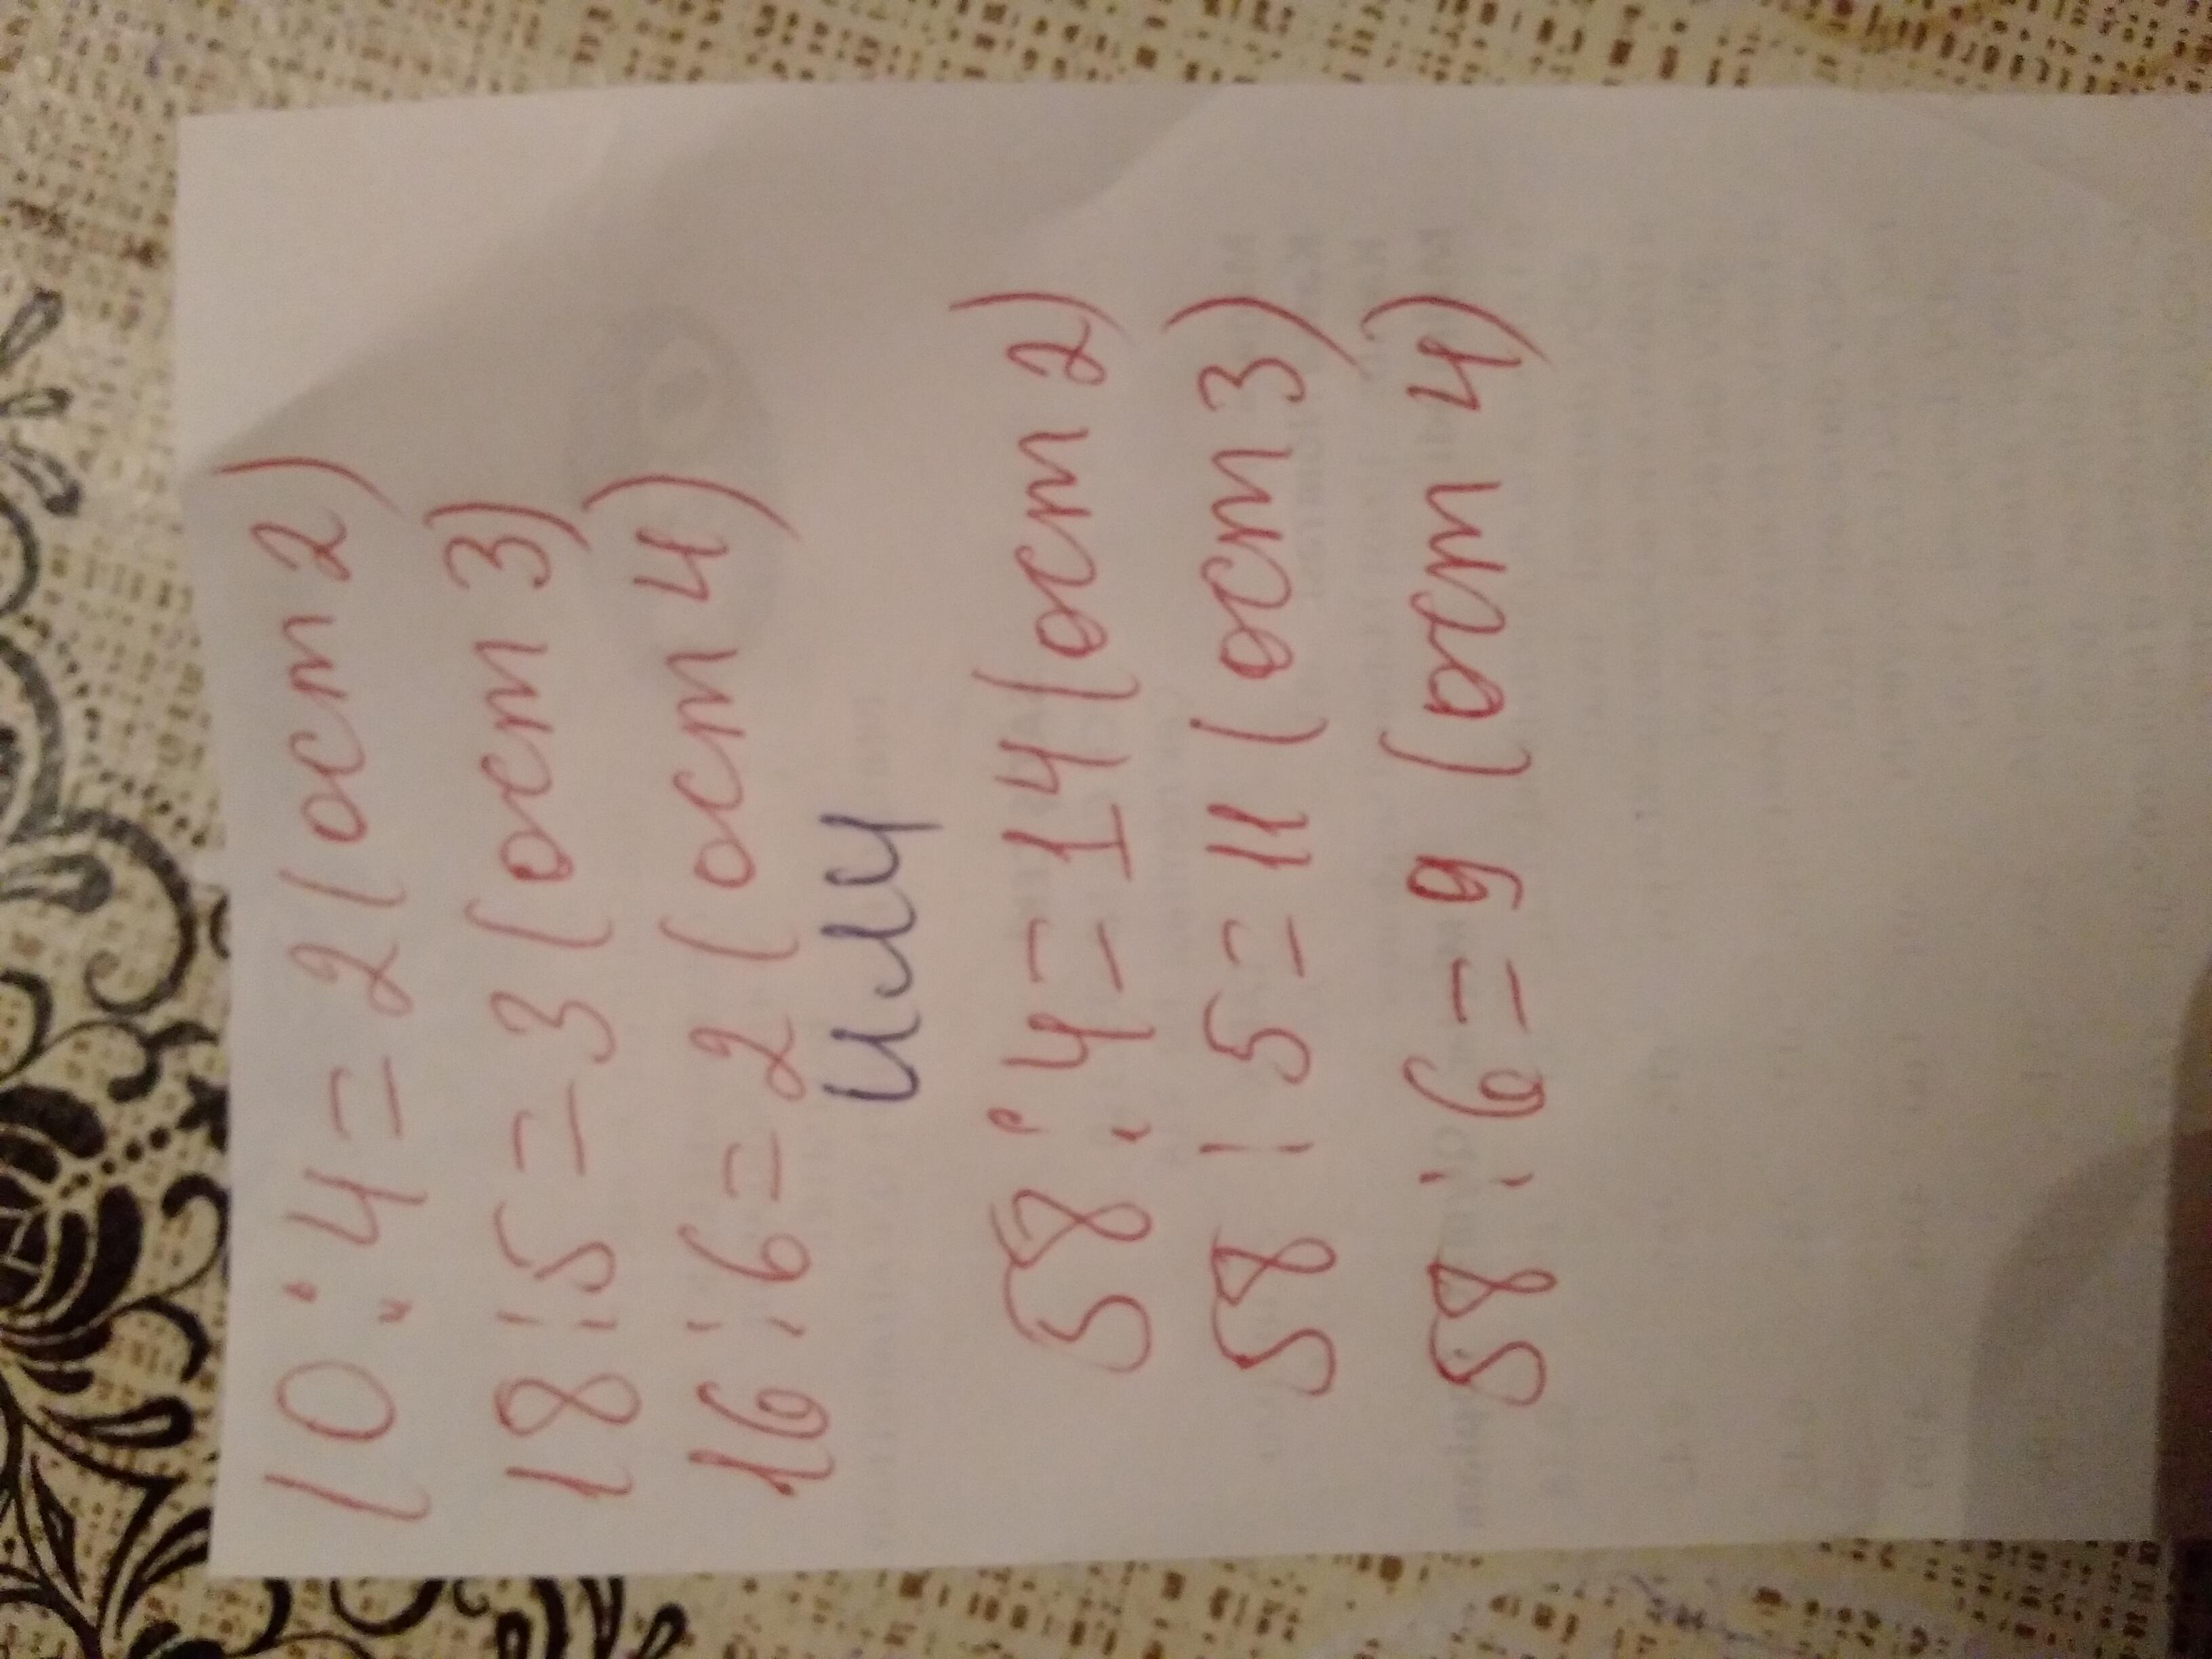 10:4=2(ост 2)
18:5=3(ост 3)
16:6=2(ост 4)
или
58:4=14(ост 2)
58:5=11(ост 3)
58:6=9(ост 4)